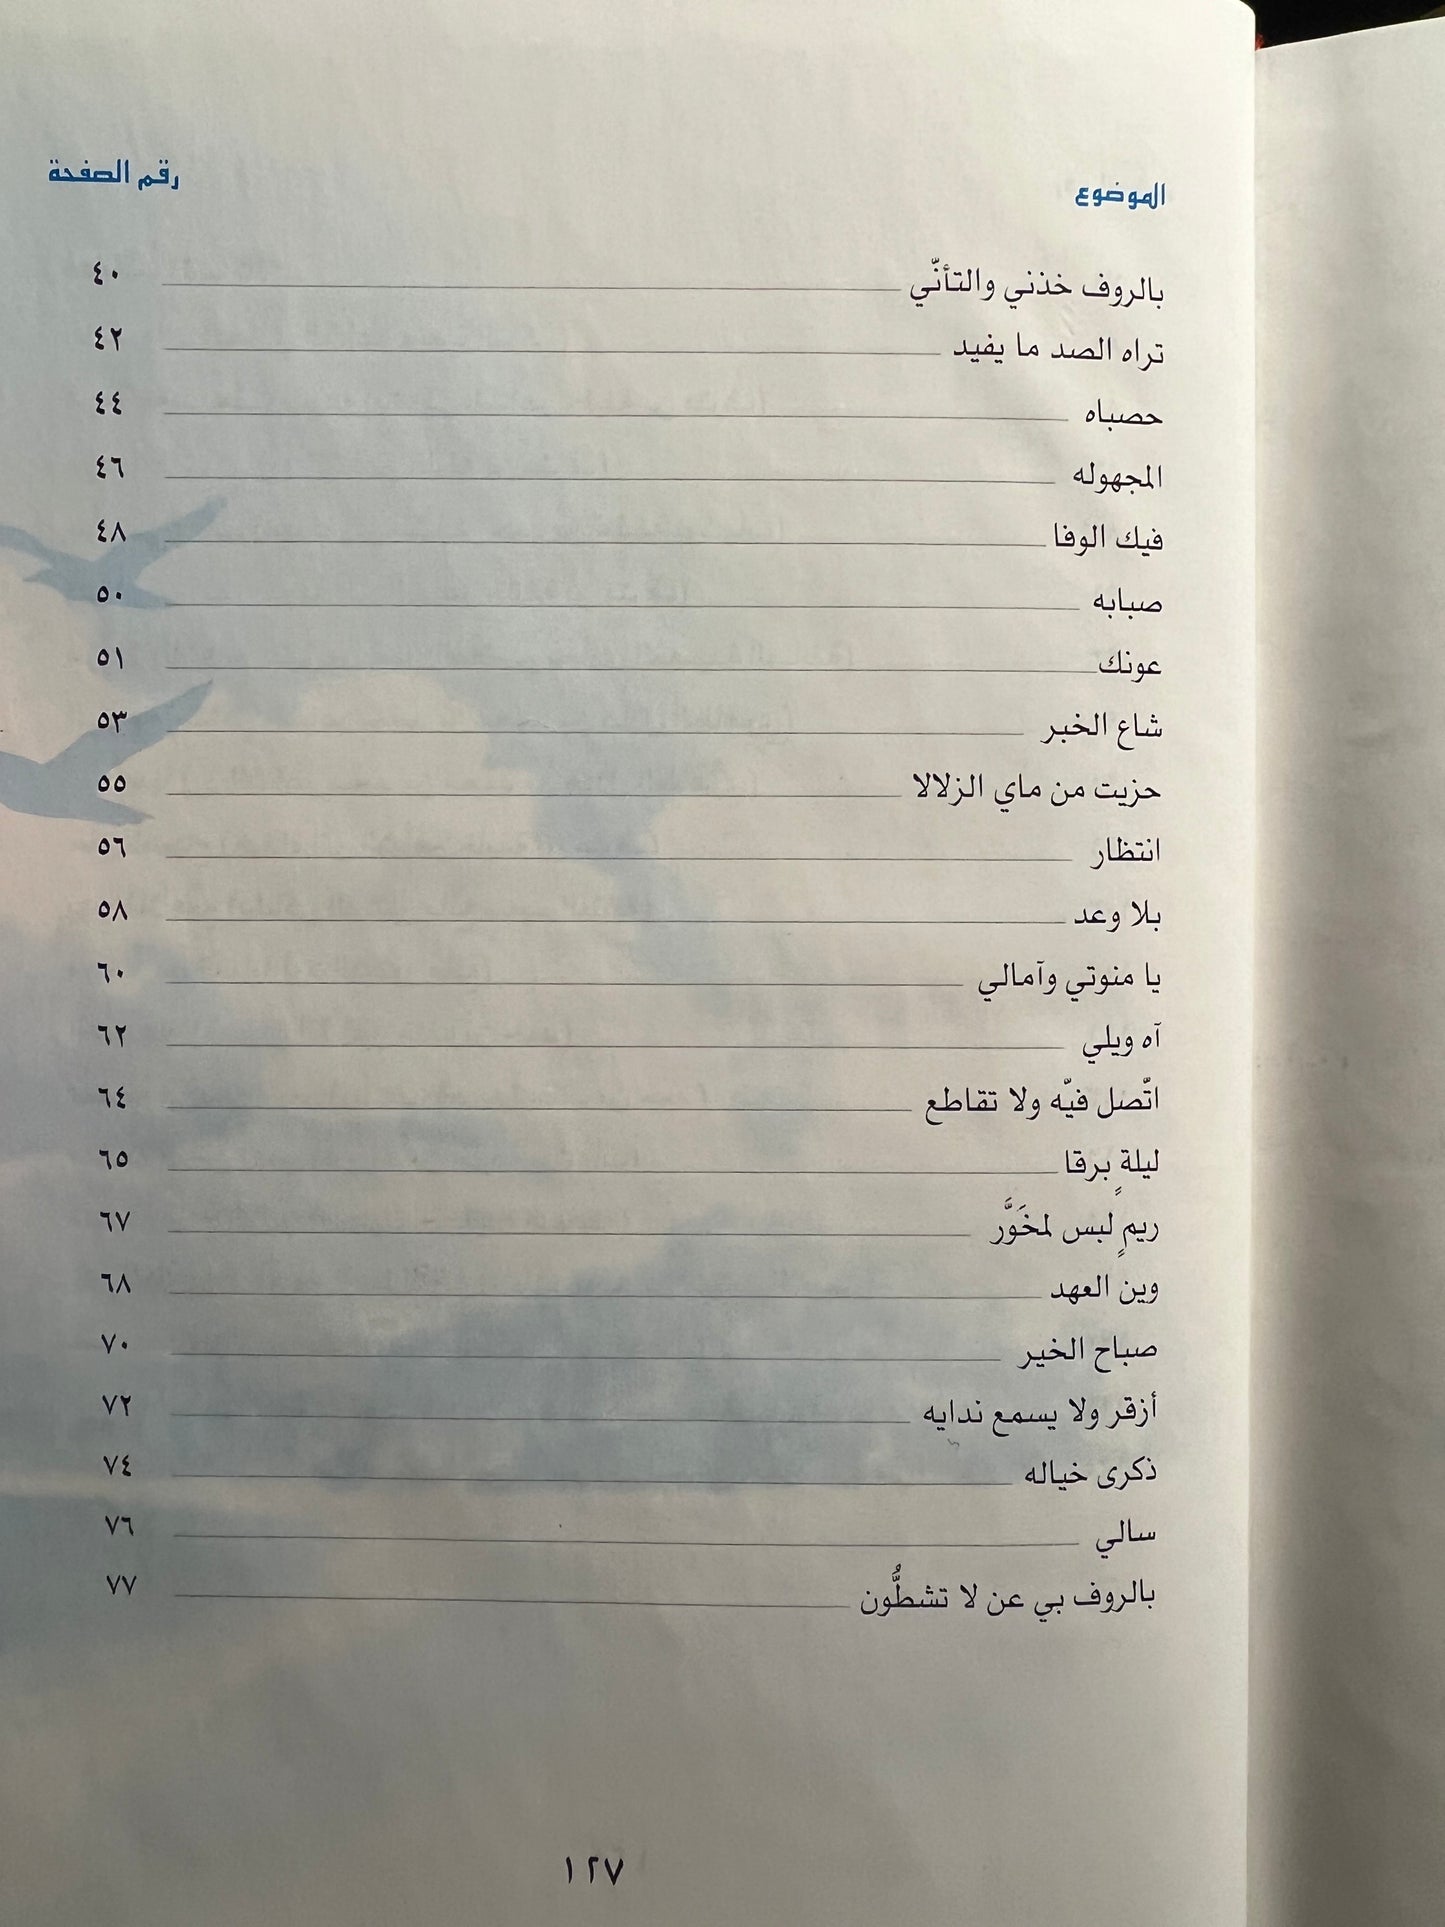 الموضوع رقم الصفحة
بالروف خذني والتأنّي ٤٠
تراه الصد ما يفيد ٤٢
حصباه ٤٤
المجهوله ٤٦
فيك الوفا ٤٨
صبابه ٥٠
عونك ٥١
شاع الخبر ٥٣
حزيت من ماي الزلالا ٥٥
انتظار ٥٦
بلا وعد ٥٨
يا منوتي وآمالي ٦٠
آه ويلي ٦٢
اتّصل فيّه ولا تقاطع ٦٤
ليلةٍ برقا ٦٥
ريمٍ لبس لمخَوَّر ٦٧
وين العهد ٦٨
صباح الخير ٧٠
أزقر ولا يسمع ندايه ٧٢
ذكرى خياله ٧٤
سالي ٧٦
بالروف بي عن لا تشطُّون ٧٧
١٢٧